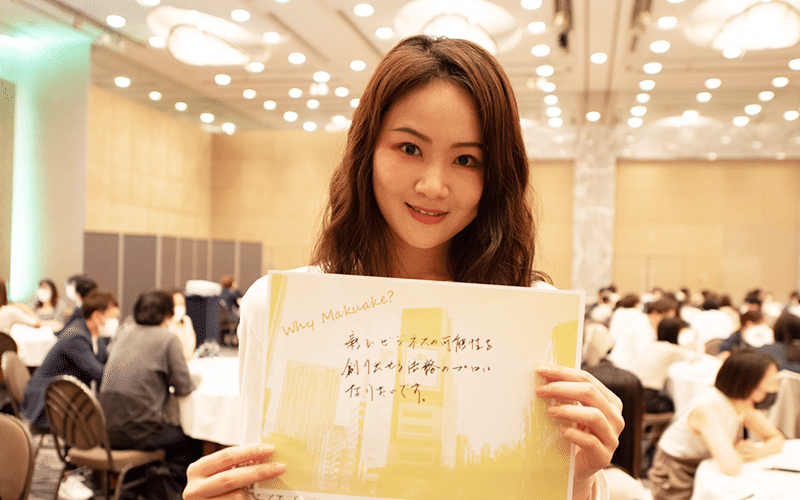 Why Makuake?
新しいビジネスの可能性を
創り出せる法務のプロに
なりたいです。